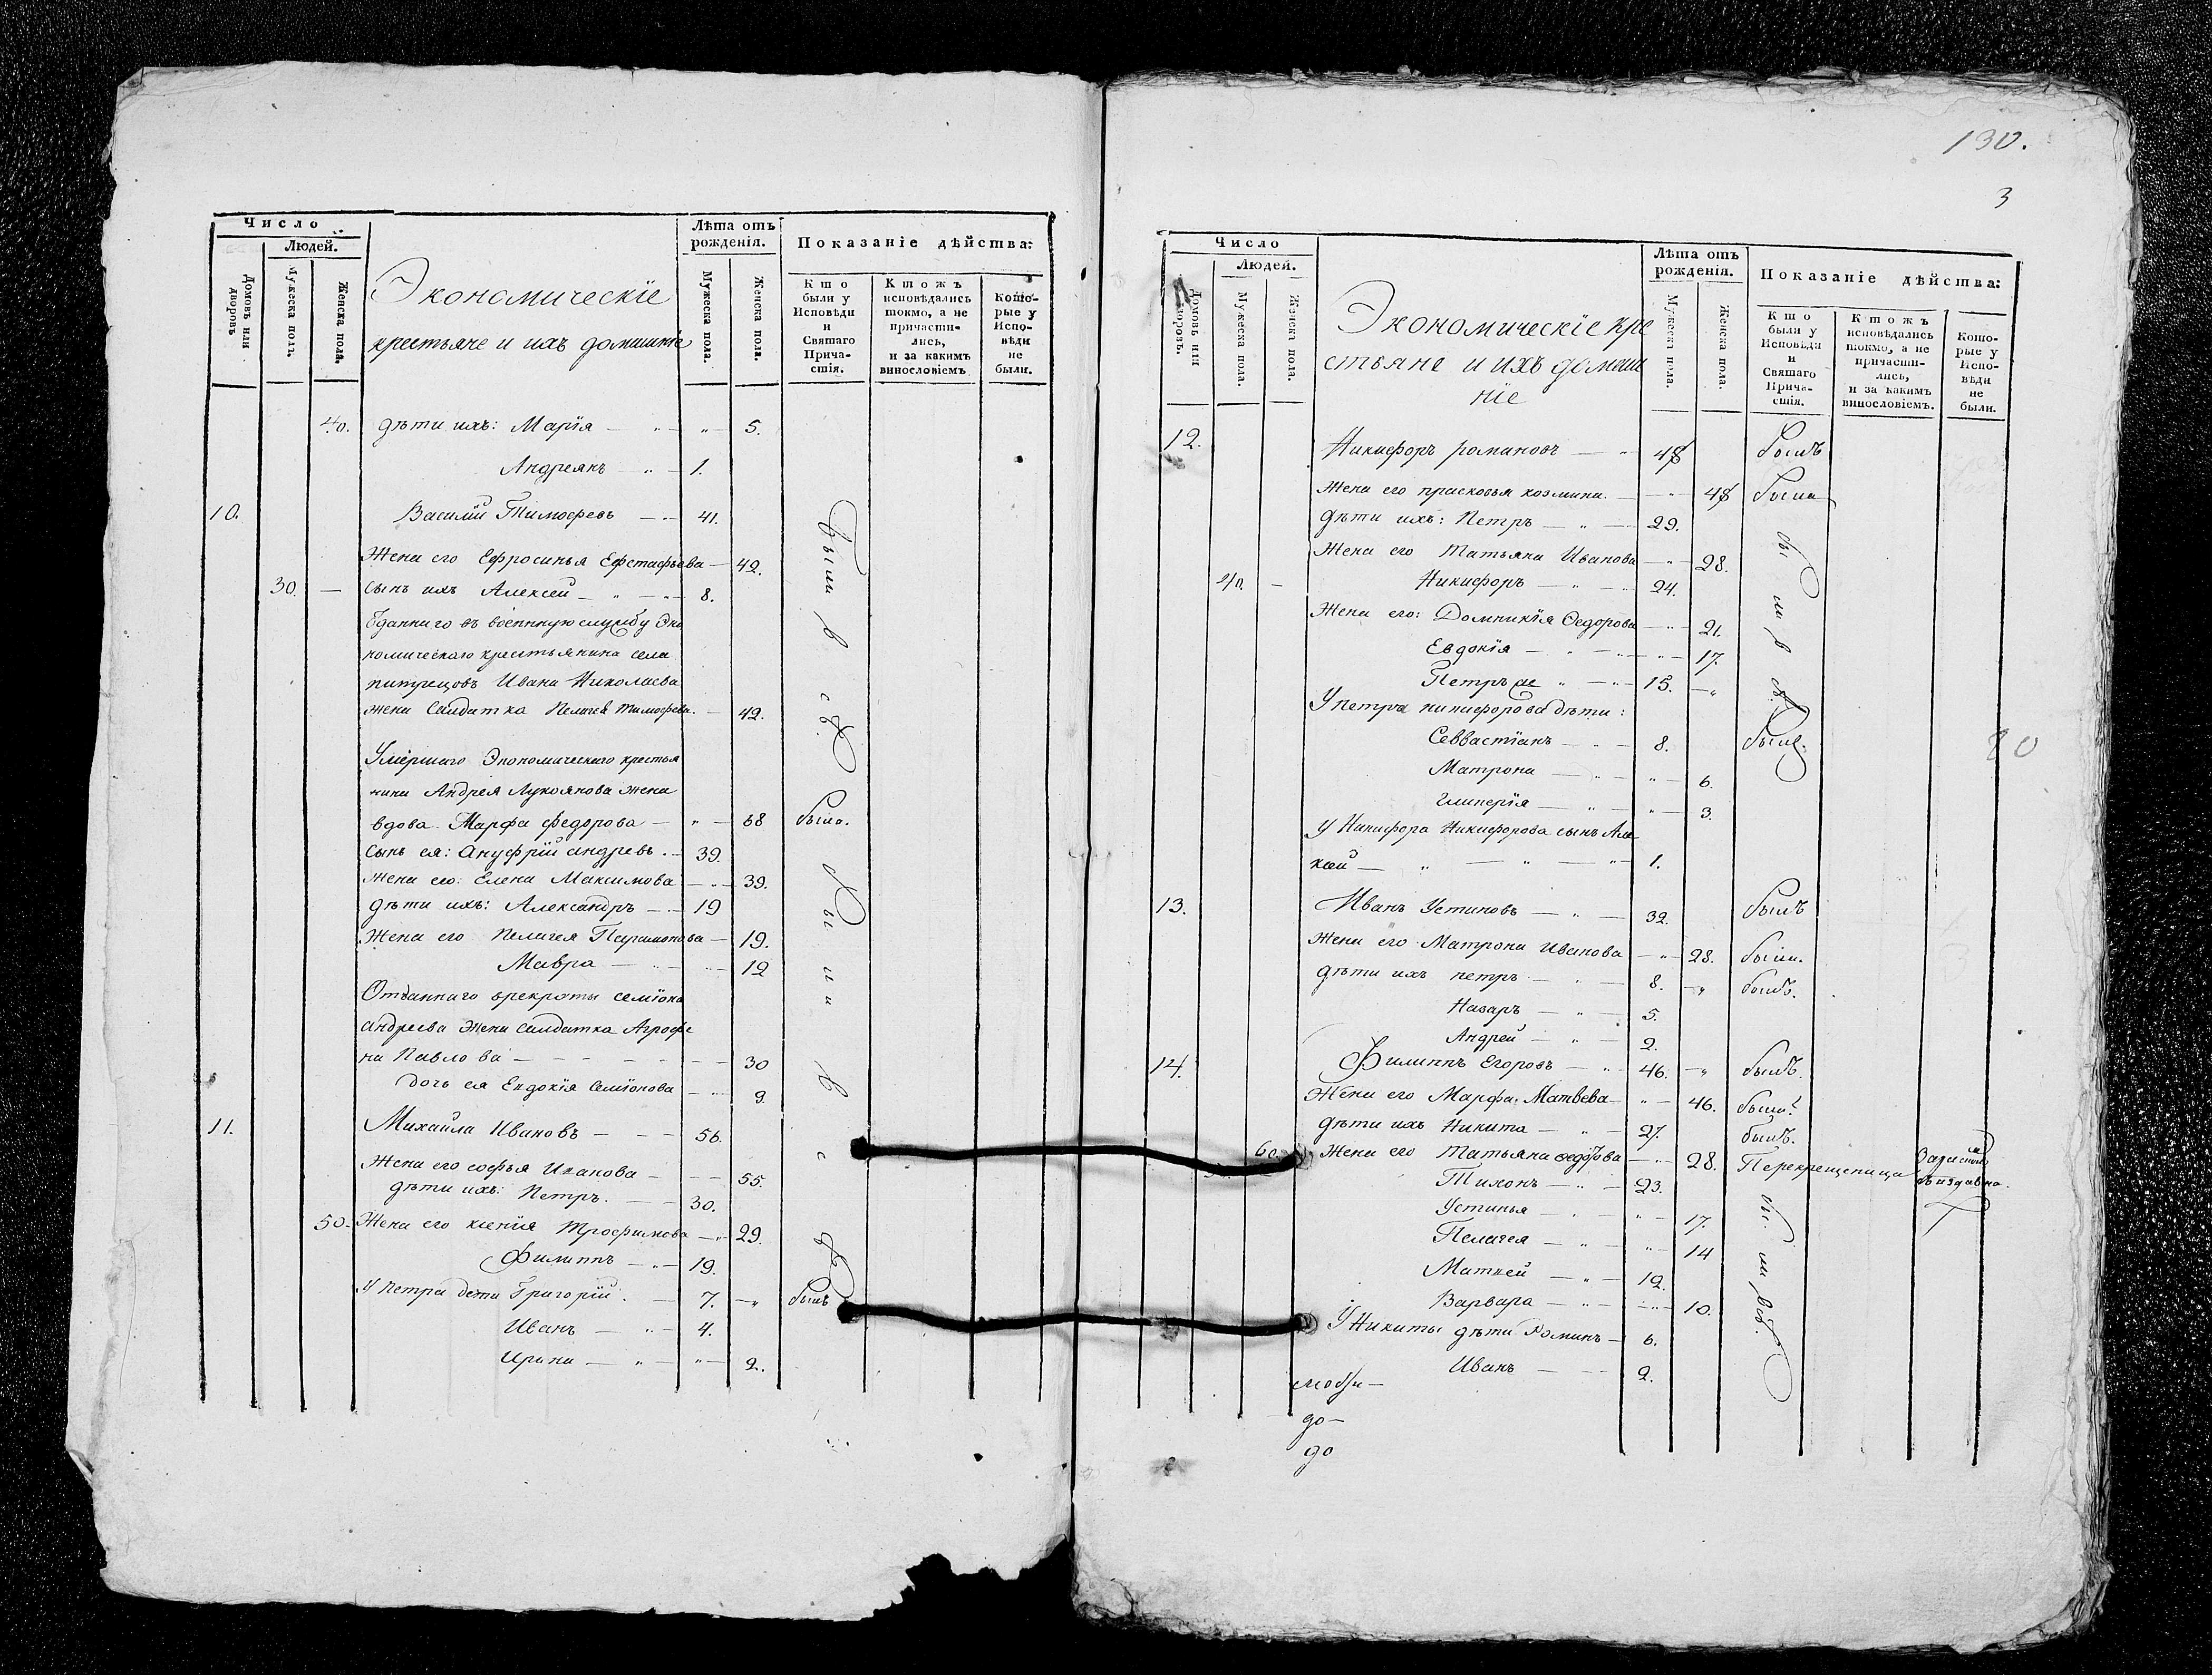 Число
Людей.
Домовъ или дворовъ
Мужеска полъ.
Женска полъ.
Экономическіе
крестьяне и ихъ домашніе
Лѣта отъ рожденія.
Мужеска пола.
Женска пола.
Показаніе дѣйства:
Кто были у Исповѣди и Святаго Причастія.
Ктожъ исповѣдались токмо, а не причастились, и за какимъ винословіемъ
Которые у Исповѣди не были.
40. дѣти ихъ: Марія — " — 5.
Андреянъ — " — 1.
10. Василій Тимофеевъ — 41.
Жена его Ефросинья Ефстафьева — 42.
30. — сынъ ихъ Алексей — " — 8.
были в с. с.
Отданнаго въ военную службу Эко
номическаго крестьянина села
Ивана Николаева
жена Салдатка Пелагея Тимофева. — 42.
Умершаго Экономическаго крестья
нина Андрея Лукоянова жена
вдова Марфа федорова — " — 68 была.
Сынъ ея: Ануфрій андревъ. — 39.
Жена его: Елена Максимова — " — 39.
дѣти ихъ: Александръ — 19
Жена его Пелагея Парамонова — 19.
Мавра — 12
Отданнаго врекруты семіона
андреева жена салдатка Агрофе
на Павлова — 30
дочь ея Евдокія Семіонова — 9.
были в с. с.
11. Михайла Ивановъ — 56.
Жена его софья Иванова — 55.
дѣти ихъ: Петръ. — 30.
50. Жена его ксенія Трофимова — " — 29.
Филиппъ — " — 19.
У Петра дети Григорій. — 7. — " былъ
Иванъ — 4.
Ирина — " — " — 2.
130.
3
Число
Людей.
Домовъ или дворовъ.
Мужеска пола.
Женска пола.
Экономическіе кре
стьяне и ихъ домаш
ніе
Лѣта отъ рожденія.
Мужеска пола.
Женска пола.
Показаніе дѣйства:
Кто были у Исповѣди и Святаго Причастія.
Ктожъ исповѣдались токмо, а не причастились, и за какимъ винословіемъ.
Которые у Исповѣди не были.
12. Никифоръ романовъ — 48 былъ
Жена его прасковья козмина. — 48 была
дѣти ихъ: Петръ — " — 29.
Жена его Татьяна Иванова — " — 28.
40. — Никифоръ — " — 24.
Жена его: Домникія Федорова — " — 21.
Евдокія — " — 17.
Петръ же " — 15. — "
были в с. с.
У петра никифорова дѣти:
Севвастіанъ — 8. былъ.
Матрона — " — 6.
Гликерія — " — 3.
80
У Никифора Никифорова сынъ Але
ксей — " — " — 1.
13. Иванъ Устиновъ — " — 32. былъ
Жена его Матрона Иванова — " — 28. была.
дѣти ихъ петръ — 8. — " былъ.
Назаръ — " — 5.
Андрей — " — 2.
14. Филиппъ Егоровъ — " 46. — " былъ.
Жена его Марфа Матвева — " — 46. была.
дѣти ихъ Никита — " — 27. былъ.
60. Жена его Татьяна федорова — " — 28. Перекрещеница
издавна.
Тихонъ — " — 23.
Устинья — " — 17.
Пелагея — " — " — 14
Матвей — " — 12.
Варвара — " — 10.
были в с. с.
У Никиты дѣти Романъ — 6.
Иванъ — 2.
до —
до